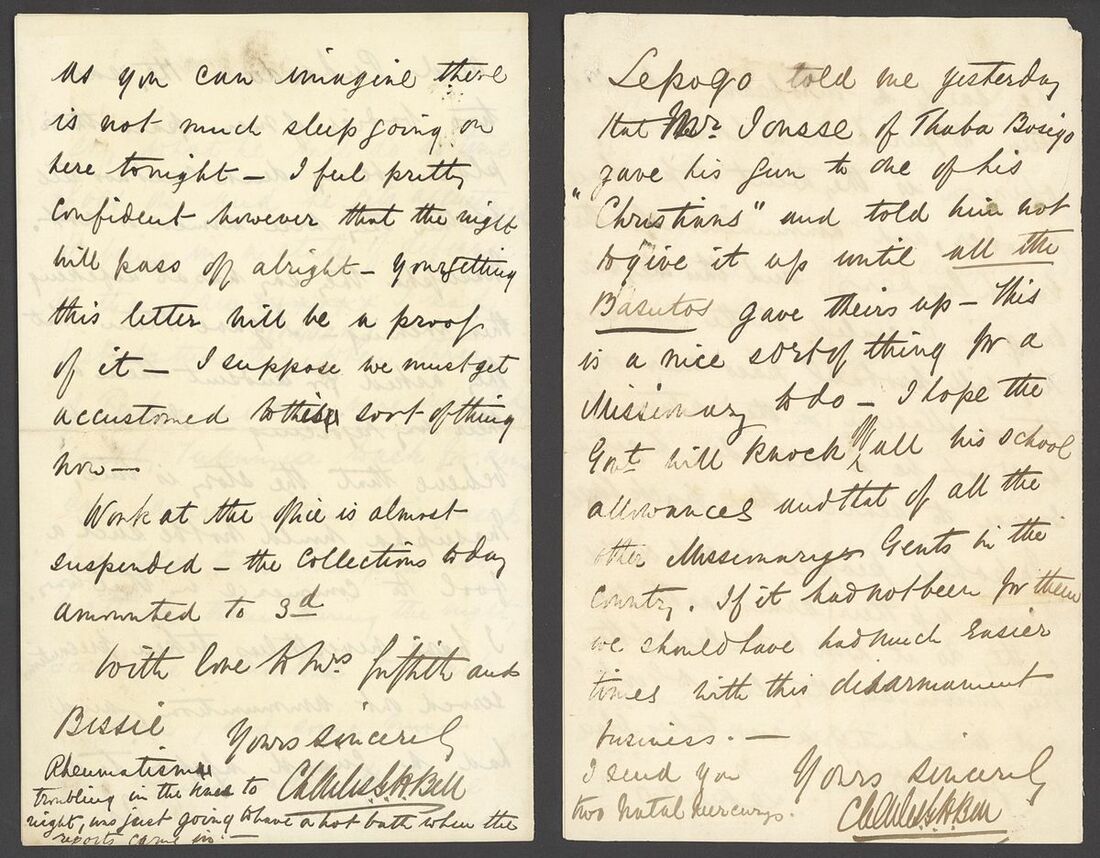 As you can imagine there
is not much sleep going on
here tonight — I feel pretty
confident however that the night
will pass off alright — your getting
this letter will be a proof
of it — I suppose we must get
accustomed to this sort of thing
now —
Work at the office is almost
suspended — the collections today
amounted to 3d
With love to Mrs Griffith and
Bessie
Yours sincerely
Charles G. H. Bell
Rheumatism
troubling in the knees to
night, was just going to have a hot bath when the
reports came in —
Lepogo told me yesterday
that Mr. Jousse of Thaba Bosigo
gave his gun to one of his
"Christians" and told him not
to give it up until all the
Basutos gave theirs up — This
is a nice sort of thing for a
Missionary to do — I hope the
Govt. will knock off all his school
allowances and that of all the
other Missionary Gents in the
country. If it had not been for them
we should have had much easier
times with this disarmament
business. —
I send you
two Natal Mercurys.
Yours sincerely
Charles G. H. Bell